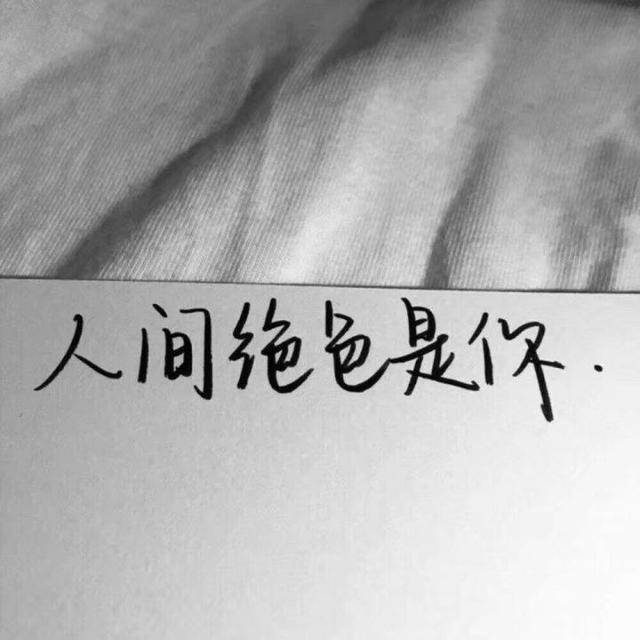 人间绝色是你.